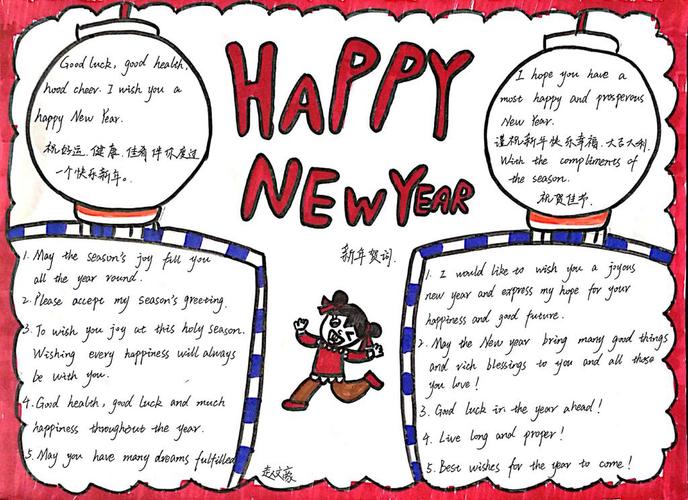 Good luck, good health,
hood cheer. I wish you a
happy New Year.
祝好运、健康、佳肴伴你度过
一个快乐新年。
HAPPY
NEW YEAR
I hope you have a
most happy and prosperous
New Year.
谨祝新年快乐幸福,大吉大利.
With the compliments of
the season.
祝贺佳节.
新年贺词.
1. May the season's joy fill you
all the year round.
2. Please accept my season's greeting.
3. To wish you joy at this holy season.
Wishing every happiness will always
be with you.
4. Good health, good luck and much
happiness throughout the year.
5. May you have many dreams fulfilled
1. I would like to wish you a joyous
new year and express my hope for your
happiness and good future.
2. May the New year bring many good things
and rich blessings to you and all those
you love!
3. Good luck in the year ahead!
4. Live long and proper!
5. Best wishes for the year to come!